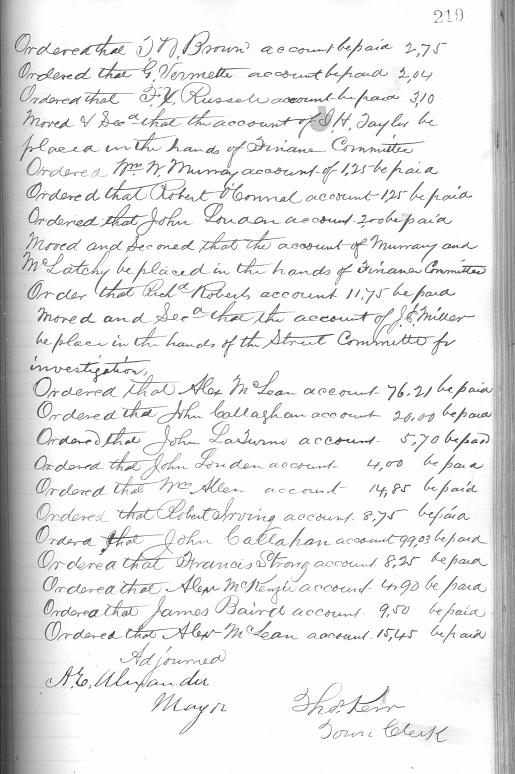 219
Ordered that D W. Brown account be paid 2,75
Ordered that G. Vermette account be paid 2,04
Ordered that F. Y. Russell account be paid 3,10
Moved & Secd that the account of J. H. Taylor be
placed in the hands of Finane Committee
Ordered Wm W. Murray account of 1,25 be paid
Ordered that Robert O'Connal account 1,25 be paid
Ordered that John Louden account 2,00 be paid
Moved and Seconed that the account of Murrary and
McLatchy be placed in the hands of Finance Committee
Order that Richd Roberts account 11,75 be paid
Moved and Secd that the account of J. E. Miller
be place in the hands of the Street Committe for
investigation,
Ordered that Alex McLean account 76.21 be paid
Ordered tha John Callaghan account 20,00 be paid
Ordered that John account 5,70 be paid
Ordered that John Louden account 4,00 be paid
Ordered that Wm Allen account 14,85 be paid
Ordered that Robert Irving account 8,75 be paid
Orderd that John Callahan account 99,03 be paid
Ordered that Francis Strong account 8,25 be paid
Ordered that Alex McKenzie account 4,90 be paid
Ordered that James Baird account 9,50 be paid
Ordered that Alex McLean account 15,45 be paid
Adjourned
A. E. Alexander
Mayor
Thos Kerr
Town Clerk